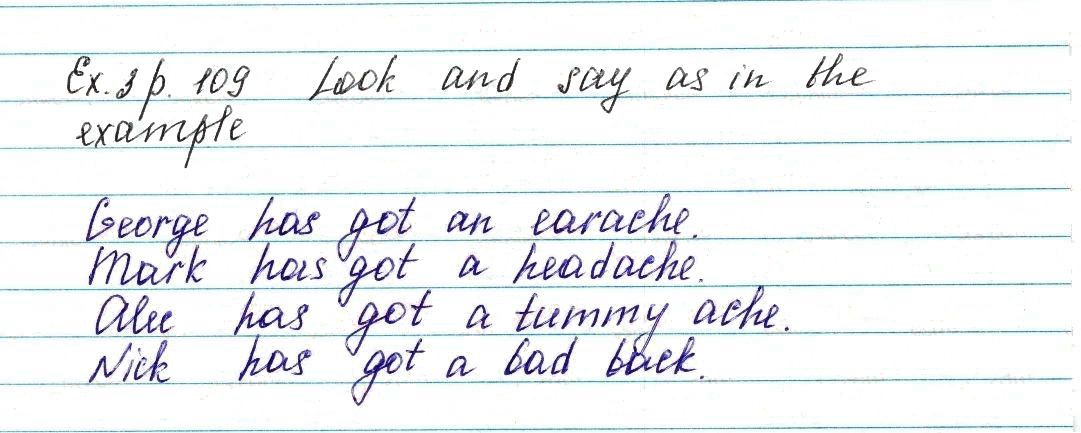 Ex. 3 p. 109 Look and say as in the
example
George has got an earache.
Mark has got a headache.
Alec has got a tummy ache.
Nick has got a bad back.